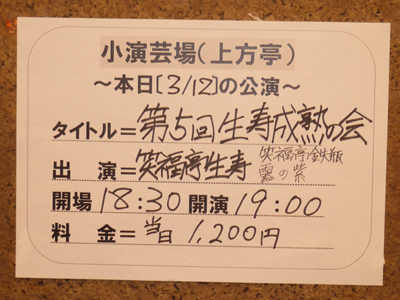 小演芸場(上方亭)
~本日[3/12]の公演~
タイトル=第5回生寿成熟の会
出 演=笑福亭生寿 笑福亭鉄瓶
露の紫
開場18:30 開演19:00
料 金=当日 1,200円